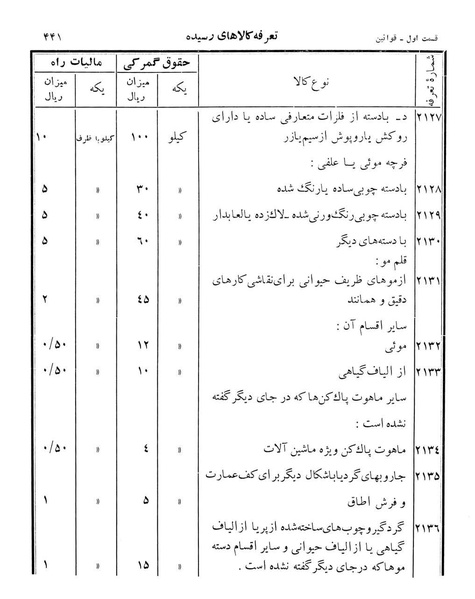 قسمت اول ـ قوانین تعرفه کالاهای رسیده ۴۴۱
شمارهٔ تعرفه نوع کالا حقوق گمرکی مالیات راه
یکه میزان ریال یکه میزان ریال
۲۱۲۷ د ـ بادسته از فلزات متعارفی ساده یا دارای
روکش یا روپوش از سیم یا زر کیلو ۱۰۰ کیلو با ظرف ۱۰
فرچه موئی یا علفی :
۲۱۲۸ بادسته چوبی ساده یا رنگ شده » ۳۰ » ۵
۲۱۲۹ بادسته چوبی رنگ ورنی شده ـ لاک زده یا لعابدار » ۴۰ » ۵
۲۱۳۰ با دسته‌های دیگر » ۶۰ » ۵
قلم مو :
۲۱۳۱ از موهای ظریف حیوانی برای نقاشی کارهای
دقیق و همانند » ۴۵ » ۲
سایر اقسام آن :
۲۱۳۲ موئی » ۱۲ » ۰/۵۰
۲۱۳۳ از الیاف گیاهی » ۱۰ » ۰/۵۰
سایر ماهوت پاک کن‌ها که در جای دیگر گفته
نشده است :
۲۱۳۴ ماهوت پاک کن ویژه ماشین آلات » ۴ » ۰/۵۰
۲۱۳۵ جاروبهای گرد یا باشکال دیگر برای کف عمارت
و فرش اطاق » ۵ » ۱
۲۱۳۶ گردگیر و چوب‌های ساخته شده از پر یا از الیاف
گیاهی یا از الیاف حیوانی و سایر اقسام دسته
موها که در جای دیگر گفته نشده است . » ۱۵ » ۱